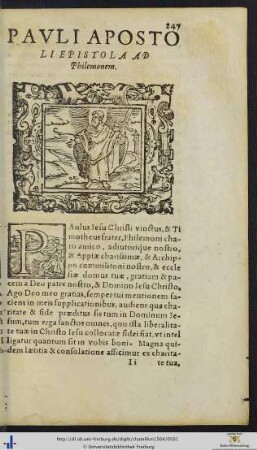 247
PAVLI APOSTO
LI EPISTOLA AD
Philemonem.
PAulus Iesu Christi vinctus, & Ti
motheus frater, Philemoni cha
ro amico, adiutorique nostro,
& Appiæ charissimæ, & Archip
po commilitoni nostro, & eccle
siæ domus tuæ, gratiam & pa
cem a Deo patre nostro, & Domino Iesu Christo,
Ago Deo meo gratias, semper tui mentionem fa
ciens in meis supplicationibus, audiens qua cha
ritate & fide præditus sis tum in Dominum Ie-
sum, tum erga sanctos omnes, quo ista liberalita-
te tuæ in Christo Iesu collocatæ fidei fiat, vt intel
ligatur quantum sit in vobis boni. Magna qui-
dem lætitia & consolatione afficimur ex charita-
Ii te tua,
© Universitätsbibliothek Freiburg